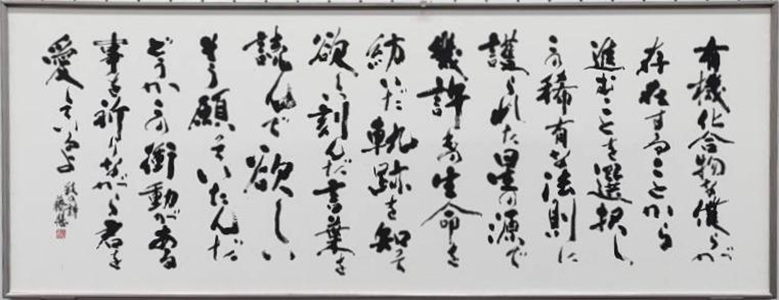 有機化合物な僕らが
存在することから
進むことを選択し
この稀有な法則に
護られた星の源で
幾許の生命を
紡いだ軌跡を知って
欲し刻んだ言葉を
読んで欲しい
そう願っていたんだ
どうかこの衝動がある
事を祈りながら君を
愛しているよ